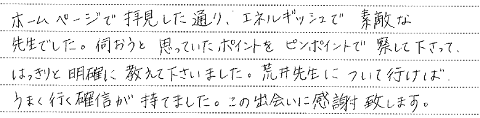 ホームページで拝見した通り、エネルギッシュで素敵な
先生でした。伺おうと思っていたポイントをピンポイントで察して下さって、
はっきりと明確に教えて下さいました。荒井先生について行けば、
うまく行く確信が持てました。この出会いに感謝致します。